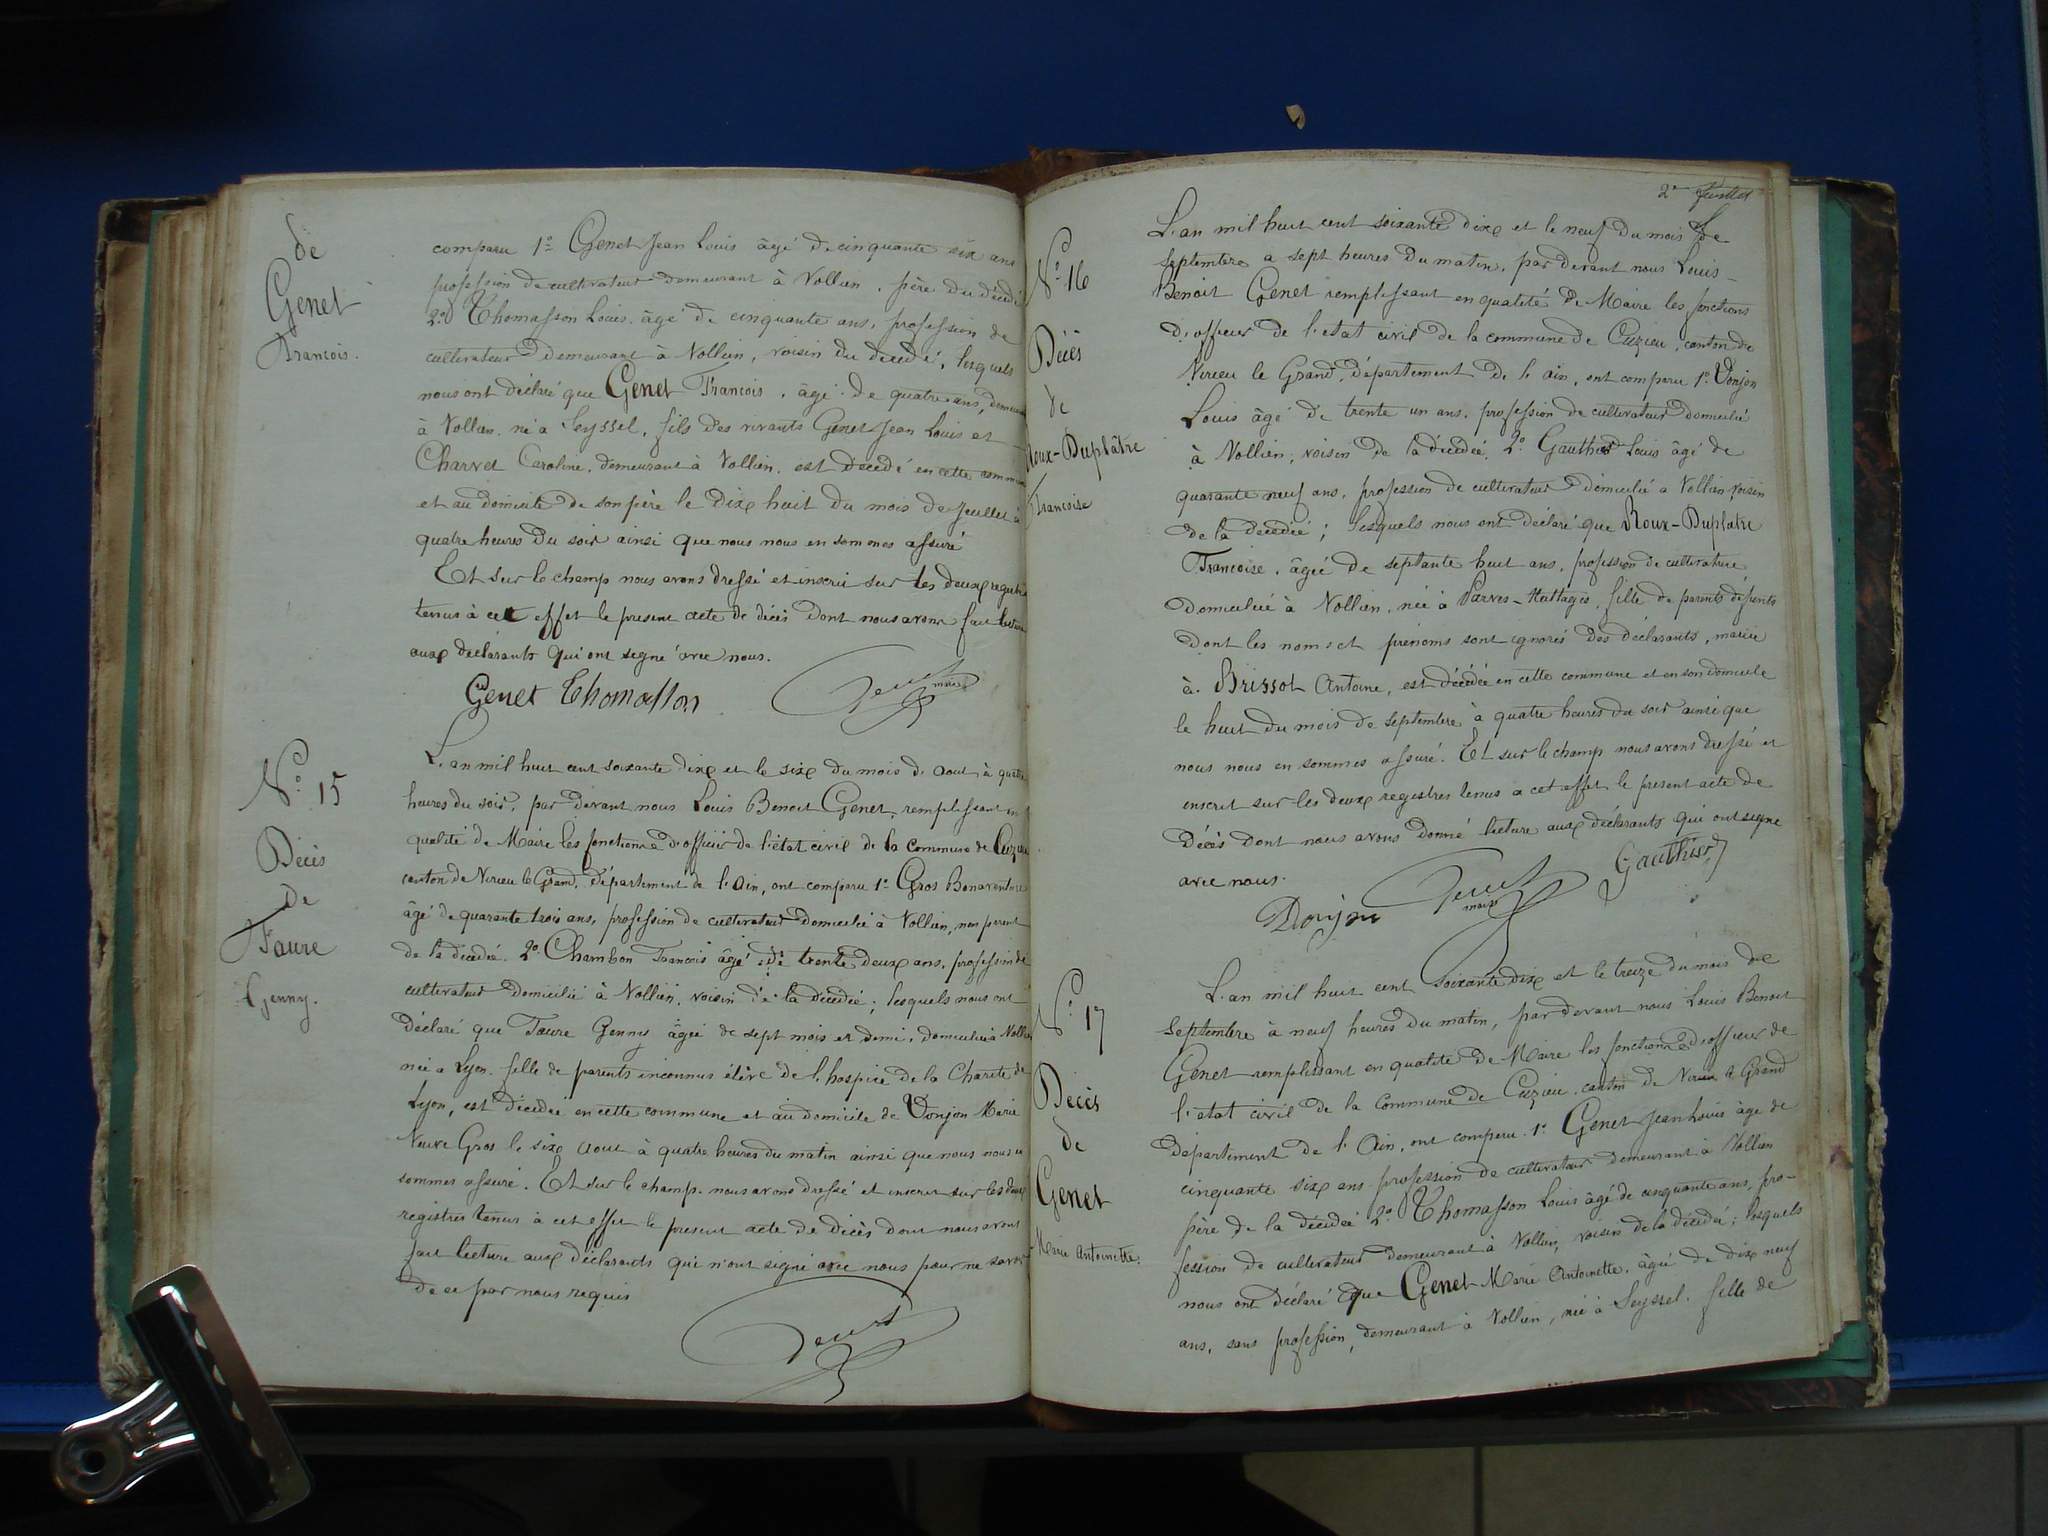 de
Genet
François.
comparu 1º Genet Jean Louis âgé de cinquante six ans
profession de cultivateur demeurant à Vollien, père du décédé
2º Thomasson Louis âgé de cinquante ans, profession de
cultivateur demeurant à Vollien, voisin du décédé, lesquels
nous ont déclaré que Genet François, âgé de quatre ans,
à Vollien né à Seyssel, fils des vivants Genet Jean Louis et
Charvet Caroline, demeurant à Vollien, est décédé en cette
et au domicile de son père le dix huit du mois de Juillet à
quatre heures du soir ainsi que nous nous en sommes assuré
Et sur le champ nous avons dressé et inscrit sur les deux
tenus à cet effet le present acte de décès dont nous avons fait lecture
aux déclarants qui ont signé avec nous.
Genet Thomasson Genet maire
Nº 15
Décès
de
Faure
Genny.
L'an mil huit cent soixante dix et le six du mois d'aout à quatre
heures du soir, par devant nous Louis Benoit Genet, remplissant en
qualité de Maire les fonctions d'officier de l'état civil de la Commune de Cuzieu
canton de Virieu le Grand, département de l'Ain, ont comparu 1º Gros Bonaventure
âgé de quarante trois ans, profession de cultivateur domicilié à Vollien, non parent
de la décédée. 2º Chambon François âgé de trente deux ans, profession de
cultivateur domicilié à Vollien, voisin de la décédée; lesquels nous ont
déclaré que Faure Genny âgée de sept mois et demi, domiciliée à
née à Lyon fille de parents inconnus élève de l'hospice de la Charité de
Lyon, est décédée en cette commune et au domicile de Donjon Marie
Veuve Gros le six Aout à quatre heures du matin ainsi que nous nous en
sommes assuré. Et sur le champ nous avons dressé et inscrit sur les deux
registres tenus à cet effet le present acte de décès dont nous avons
fait lecture aux déclarants qui n'ont signé avec nous pour ne savoir
de ce par nous requis
Genet
2e feuillet
Nº 16
Décès
de
Roux-Duplâtre
Francoise
L'an mil huit cent soixante dix et le neuf du mois de
septembre a sept heures du matin, par devant nous Louis
Benoit Genet remplissant en qualité de Maire les fonctions
d'officier de l'etat civil de la commune de Cuzieu, canton de
Virieu le Grand, département de l'ain, ont comparu 1º Donjon
Louis âgé de trente un ans, profession de cultivateur domicilié
à Vollien, voisin de la décédée. 2º Gauthier Louis âgé de
quarante neuf ans, profession de cultivateur domicilié a Vollien voisin
de la décédée; lesquels nous ont déclaré que Roux-Duplatre
Francoise, âgée de septante huit ans, profession de cultivatrice
domiciliée à Vollien, née à Parves-Nattages, fille de parents défunts
dont les noms et prénoms sont ignorés des déclarants, mariée
à Brissot Antoine, est décédée en cette commune et en son domicile
le huit du mois de septembre à quatre heures du soir ainsi que
nous nous en sommes assuré. Et sur le champ nous avons dressé et
inscrit sur les deux registres tenus a cet effet le present acte de
décès dont nous avons donné lecture aux déclarants qui ont signé
avec nous.
Donjon Genet maire Gauthier
Nº 17
Décès
de
Genet
Marie Antoinette.
L'an mil huit cent soixante dix et le treize du mois de
septembre à neuf heures du matin, par devant nous Louis Benoit
Genet remplissant en qualité de Maire les fonctions d'officier de
l'etat civil de la Commune de Cuzieu, canton de Virieu le Grand
département de l'Ain, ont comparu 1º Genet Jean Louis âgé de
cinquante six ans profession de cultivateur demeurant à Vollien
père de la décédée 2º Thomasson Louis âgé de cinquante ans, pro-
fession de cultivateur demeurant à Vollien, voisin de la décédée; lesquels
nous ont déclaré que Genet Marie Antoinette, âgée de dix neuf
ans, sans profession, demeurant à Vollien, née à Seyssel. fille de